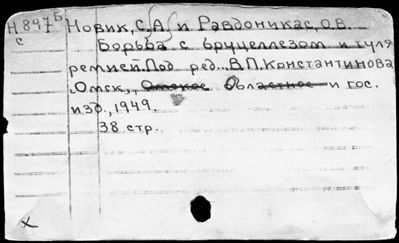 Н897Б Новик, С.А. и Равдоникас, О.В.
С
Борьба с бруцеллезом и туля
ремией. Под ред. В.П. Константинова
Омск, Омское Областное и гос.
изд., 1949.
38 стр.
x